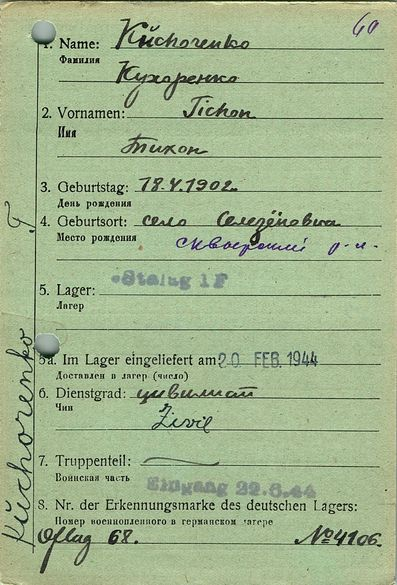 60
1. Name: Küchorenko
Фамилия
Кухаренко
2. Vornamen: Tichon
Имя
Тихон
3. Geburtstag: 18.V.1902.
День рождения
4. Geburtsort: село Селезёновка
Место рождения сквырский р-н.
5. Lager: Stalag 1F
Лагерь
5a. Im Lager eingeliefert am: 20 FEB. 1944
Доставлен в лагерь (число)
6. Dienstgrad: цивилист
Чин
Zivil
7. Truppenteil:
Воинская часть
Eingang 22.6.44
8. Nr. der Erkennungsmarke des deutschen Lagers:
Номер военнопленного в германском лагере
Oflag 68. №4106.
Küchorenko T